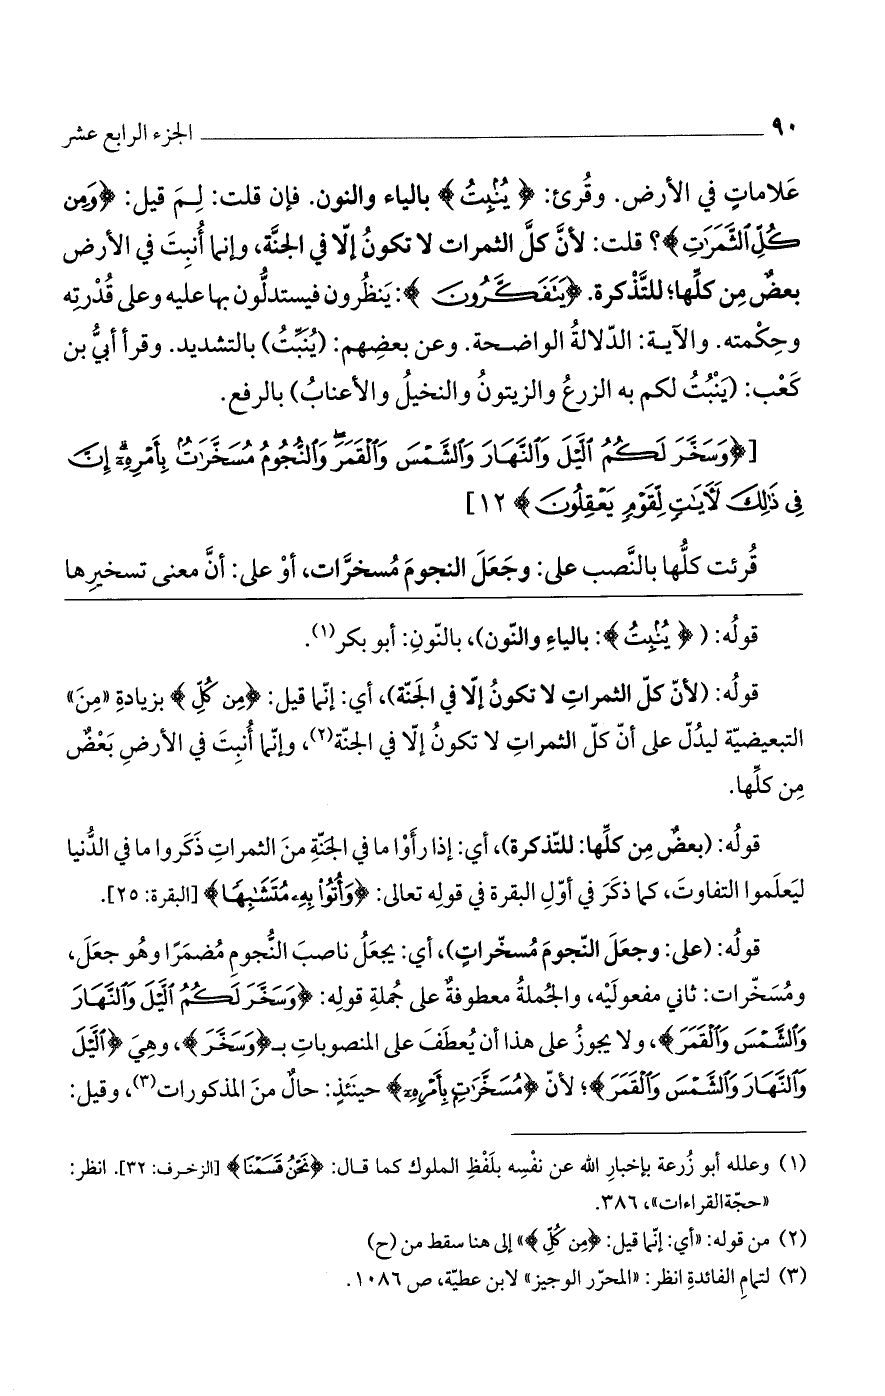 ٩٠ ــــــ الجزء الرابع عشر
عَلاماتٍ في الأرض. وقُرئ: ﴿ يُنۢبِتُ ﴾ بالياء والنون. فإن قلت: لِـمَ قيل: ﴿وَمِن
كُلِّ ٱلثَّمَرَٰتِ ﴾؟ قلت: لأنَّ كلَّ الثمرات لا تكونُ إلّا في الجنَّة، وإنما أُنبِتَ في الأرض
بعضٌ مِن كلِّها؛ للتَّذْكرة. ﴿يَتَفَكَّرُونَ ﴾: يَنظُرون فيستدلُّون بها عليه وعلى قُدْرتِه
وحِكْمته. والآيـة: الدّلالةُ الواضـحة. وعن بعضِهم: (يُنَبِّتُ) بالتشديد. وقرأ أبيُّ بن
كَعْب: (يَنْبُتُ لكم به الزرعُ والزيتونُ والنخيلُ والأعنابُ) بالرفع.
[﴿وَسَخَّرَ لَكُمُ ٱلَّيْلَ وَٱلنَّهَارَ وَٱلشَّمْسَ وَٱلْقَمَرَ ۖ وَٱلنُّجُومُ مُسَخَّرَٰتٌۢ بِأَمْرِهِۦٓ ۗ إِنَّ
فِى ذَٰلِكَ لَأَيَٰتٍ لِّقَوْمٍ يَعْقِلُونَ ﴾ ١٢]
قُرئت كلُّها بالنَّصب على: وجَعَلَ النجومَ مُسخرَّات، أوْ على: أنَّ معنى تسخيرِها
قولُه: ( ﴿ يُنۢبِتُ ﴾: بالياءِ والنّون)، بالنّونِ: أبو بكر(١).
قولُه: (لأنّ كلّ الثمراتِ لا تكونُ إلّا في الجَنّة)، أي: إنّما قيل: ﴿مِن كُلِّ ﴾ بزيادةِ «مِنَ»
التبعيضيّة ليدُلّ على أنّ كلّ الثمراتِ لا تكونُ إلّا في الجنّة(٢)، وإنّما أُنبِتَ في الأرضِ بَعْضٌ
مِن كلِّها.
قولُه: (بعضٌ مِن كلِّها: للتّذكرة)، أي: إذا رأَوْا ما في الجَنّةِ منَ الثمراتِ ذَكَروا ما في الدُّنيا
ليَعلَموا التفاوتَ، كما ذكَرَ في أوّلِ البقرة في قولِه تعالى: ﴿وَأُتُوا۟ بِهِۦ مُتَشَٰبِهًا ﴾ [البقرة: ٢٥].
قولُه: (على: وجعَلَ النّجومَ مُسخّراتٍ)، أي: يجعَلُ ناصبَ النُّجومِ مُضمَرًا وهُو جعَلَ،
ومُسَخّرات: ثاني مفعولَيْه، والجُملةُ معطوفةٌ على جُملةِ قولِه: ﴿وَسَخَّرَ لَكُمُ ٱلَّيْلَ وَٱلنَّهَارَ
وَٱلشَّمْسَ وَٱلْقَمَرَ ﴾، ولا يجوزُ على هذا أن يُعطَفَ على المنصوباتِ بـ﴿وَسَخَّرَ ﴾، وهِيَ ﴿ٱلَّيْلَ
وَٱلنَّهَارَ وَٱلشَّمْسَ وَٱلْقَمَرَ ﴾؛ لأنّ ﴿مُسَخَّرَٰتٍ بِأَمْرِهِۦ﴾ حينَئذٍ: حالٌ منَ المذكورات(٣)، وقيل:
(١) وعلله أبو زُرعة بإخبارِ الله عن نفْسِه بلَفْظِ الملوك كما قـال: ﴿نَحْنُ قَسَمْنَا﴾ [الزخـرف: ٣٢]. انظر:
«حجّة القراءات»، ٣٨٦.
(٢) من قوله: «أي: إنّما قيل: ﴿مِن كُلِّ ﴾» إلى هنا سقط من (ح)
(٣) لتمامِ الفائدةِ انظر: «المحرّر الوجيز» لابن عطيّة، ص ١٠٨٦.